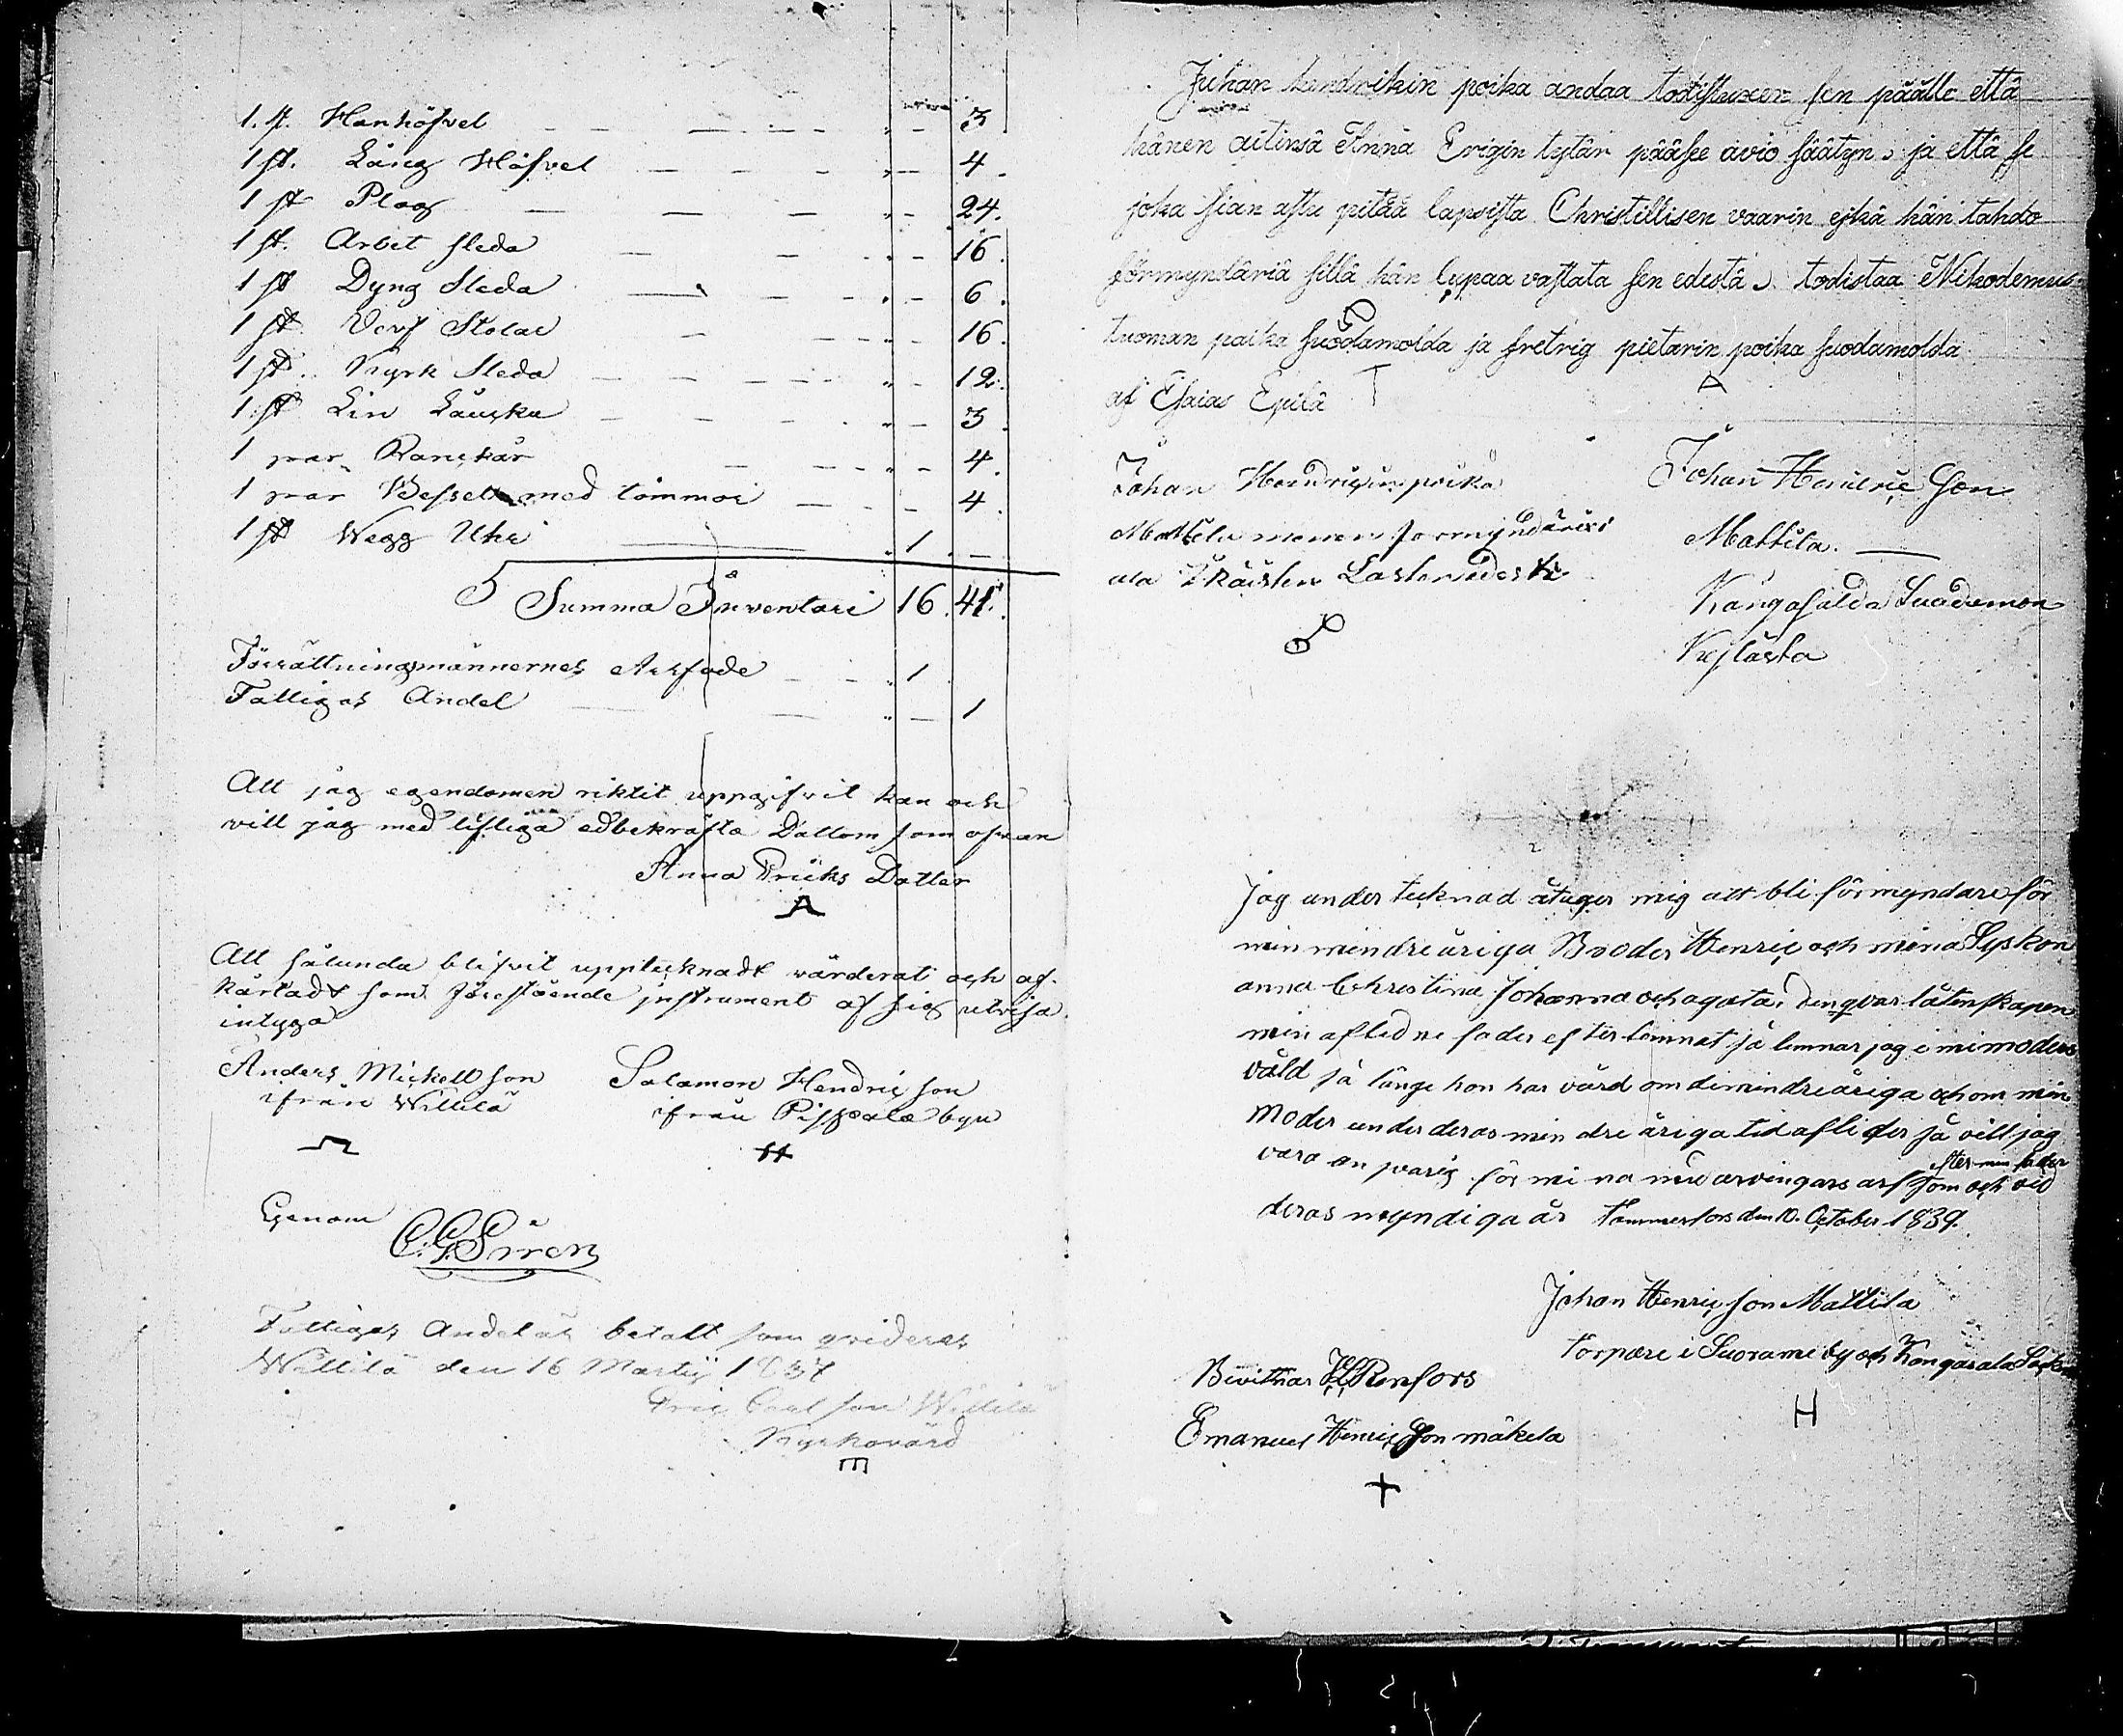 1. st. Hanhöfvel " - 3
1 st. Lång Höfvel " - 4.
1 st Plog " - 24.
1 st. Arbet sleda " - 16.
1 st Dyng Sleda " - 6.
1 st Stolar " - 16.
1 st. Kyrk Sleda " - 12.
1 st Lin " - 3.
1 par " - 4.
1 par med tömmar " - 4.
1 st Wegg Uhr " 1. -
Summa Inventari 16. 41.
Förrättningsmännernes " 1
Fattigas Andel " - 1
Att jag egendomen riktit uppgifvit kan och
vill jag med lifliga edbekräfta Dattom som ofvan
Anna Eriks Dotter
Att sålunda blifvit upptecknadt värderat och af-
kårtadt som föreståend instrument af sig utvisa
intyga
Anders Mickellson Salamon Hendricson
ifrån Willilä ifrån Pispala byn
Genom
Fattigas Andel är betalt som qvideras
Willilä den 16 Martij 1837
Eric Carlson Willilä
Kyrkovärd
m
Juhan hendrikin poika andaa todistuxen sen päälle että
hänen äitinsä Anna Erigin tytär pääsee avio säätyn, ja että se
joka sian astu pitää lapsista Christillisen vaarin eikä hän tahdo
förmyndäriä sillä hän lupaa vastata sen edestä, todistaa Nikodemus
tuoman poika suodamolda ja fretrig pietarin poika suodamolda
af Esaias Epilä
Johan Hendrigin poika Johan Henric Son
Mattila Mattila.
Kangasalda
Kylästa
Jag under tecknad åtager mig att bli förmyndare för
min mindreåriga Brodes Henric och mina Syskon
anna Christina Johanna och agata, den qvar låtenskapen
min afledne fader efter lemnat så lemnar jag i mi moders
våld så länge hon har vård om de mindreåriga och om min
Moder under deras min dre åriga tid aflider så vill jag
efter min fader
vara an svarig för mi na arvingars arf som och vid
deras myndiga år Tammerfors den 10. October 1839.
Johan Henricson Mattila
Torpare i Suorama by och Kangasala Sockn
H
Bevittnar Renfors
Emanuel Henricson mäkelä
+